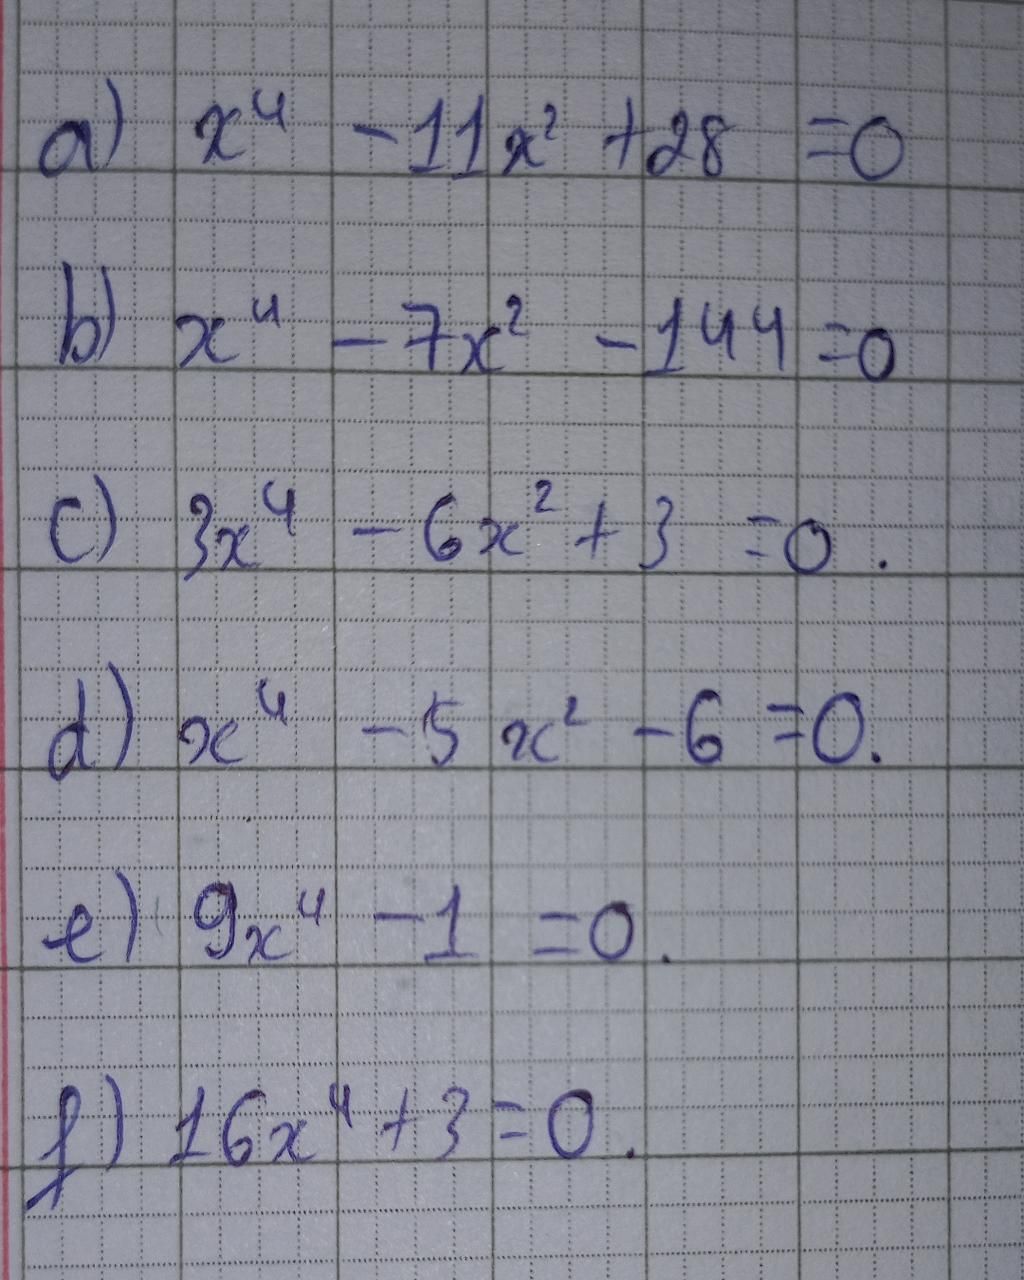 a) x⁴ - 11x² + 28 = 0
b) x⁴ - 7x² - 144 = 0
c) 3x⁴ - 6x² + 3 = 0.
d) x⁴ - 5x² - 6 = 0.
e) 9x⁴ - 1 = 0.
f) 16x⁴ + 3 = 0.